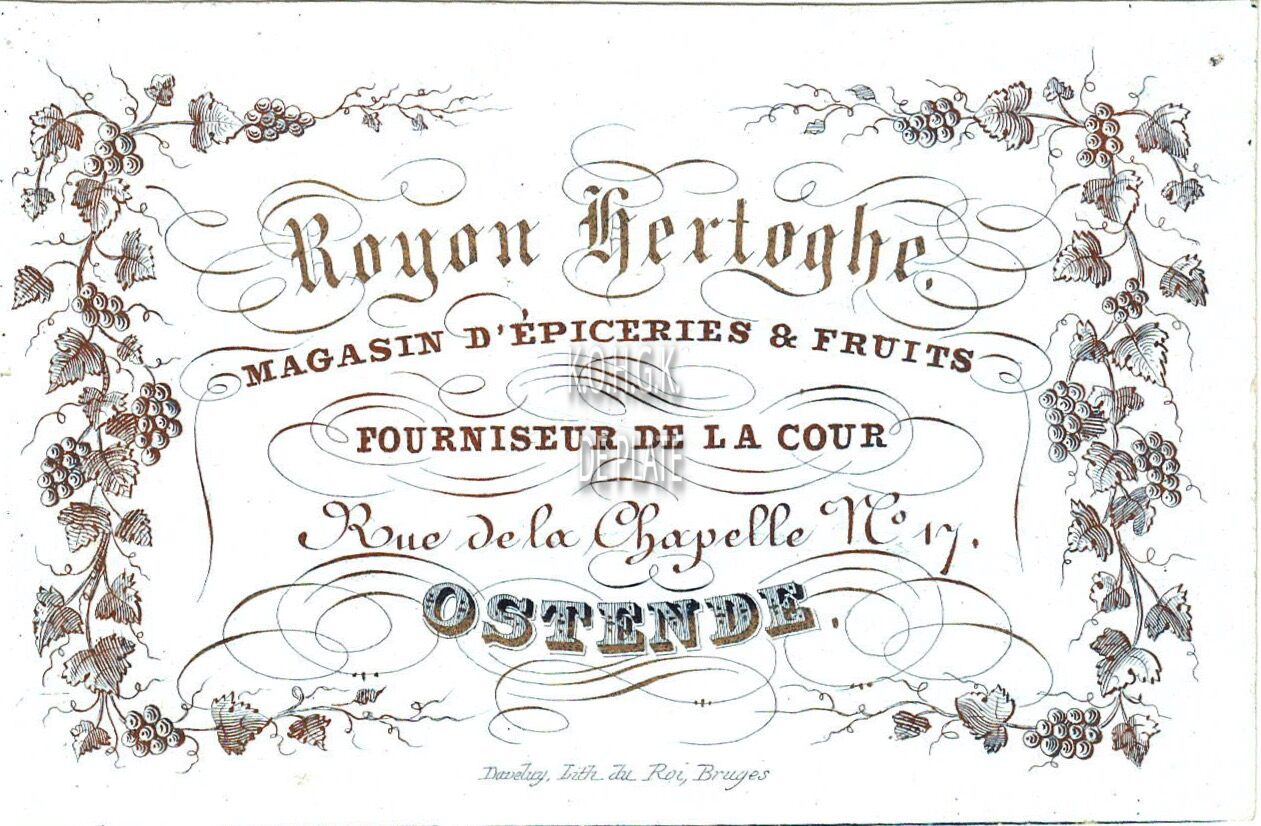 Royon Hertoghe.
MAGASIN D'ÉPICERIES & FRUITS
KOHGK
FOURNISEUR DE LA COUR
DE PLATE
Rue de la Chapelle Nº 17.
OSTENDE.
Daveluy, Lith. du Roi, Bruges